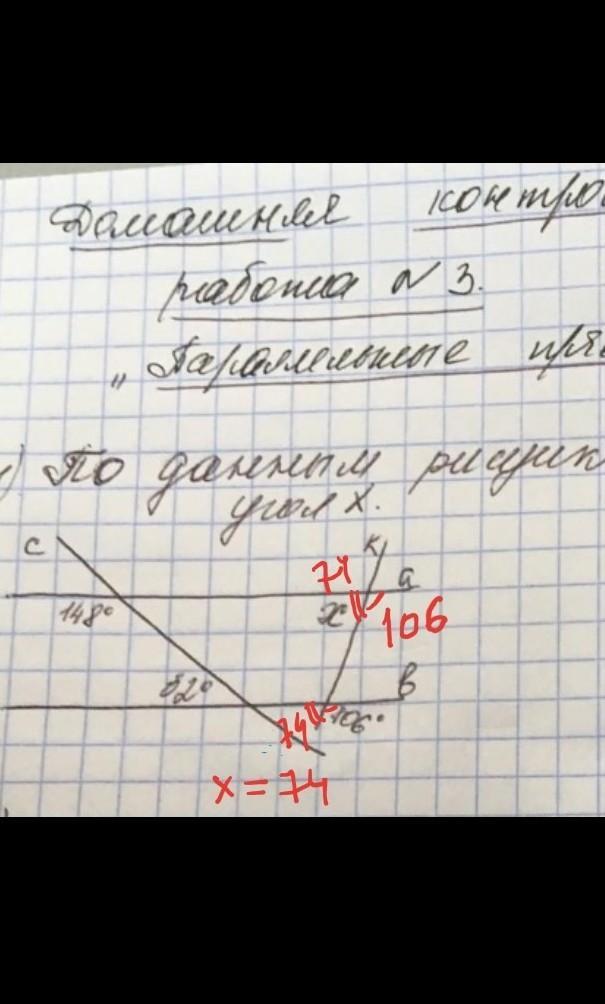 Домашняя контро
работа № 3.
„Параллельные пря
По данным рисунк
угол x.
C K
74 a
148° x 106
B
74 106°
x = 74